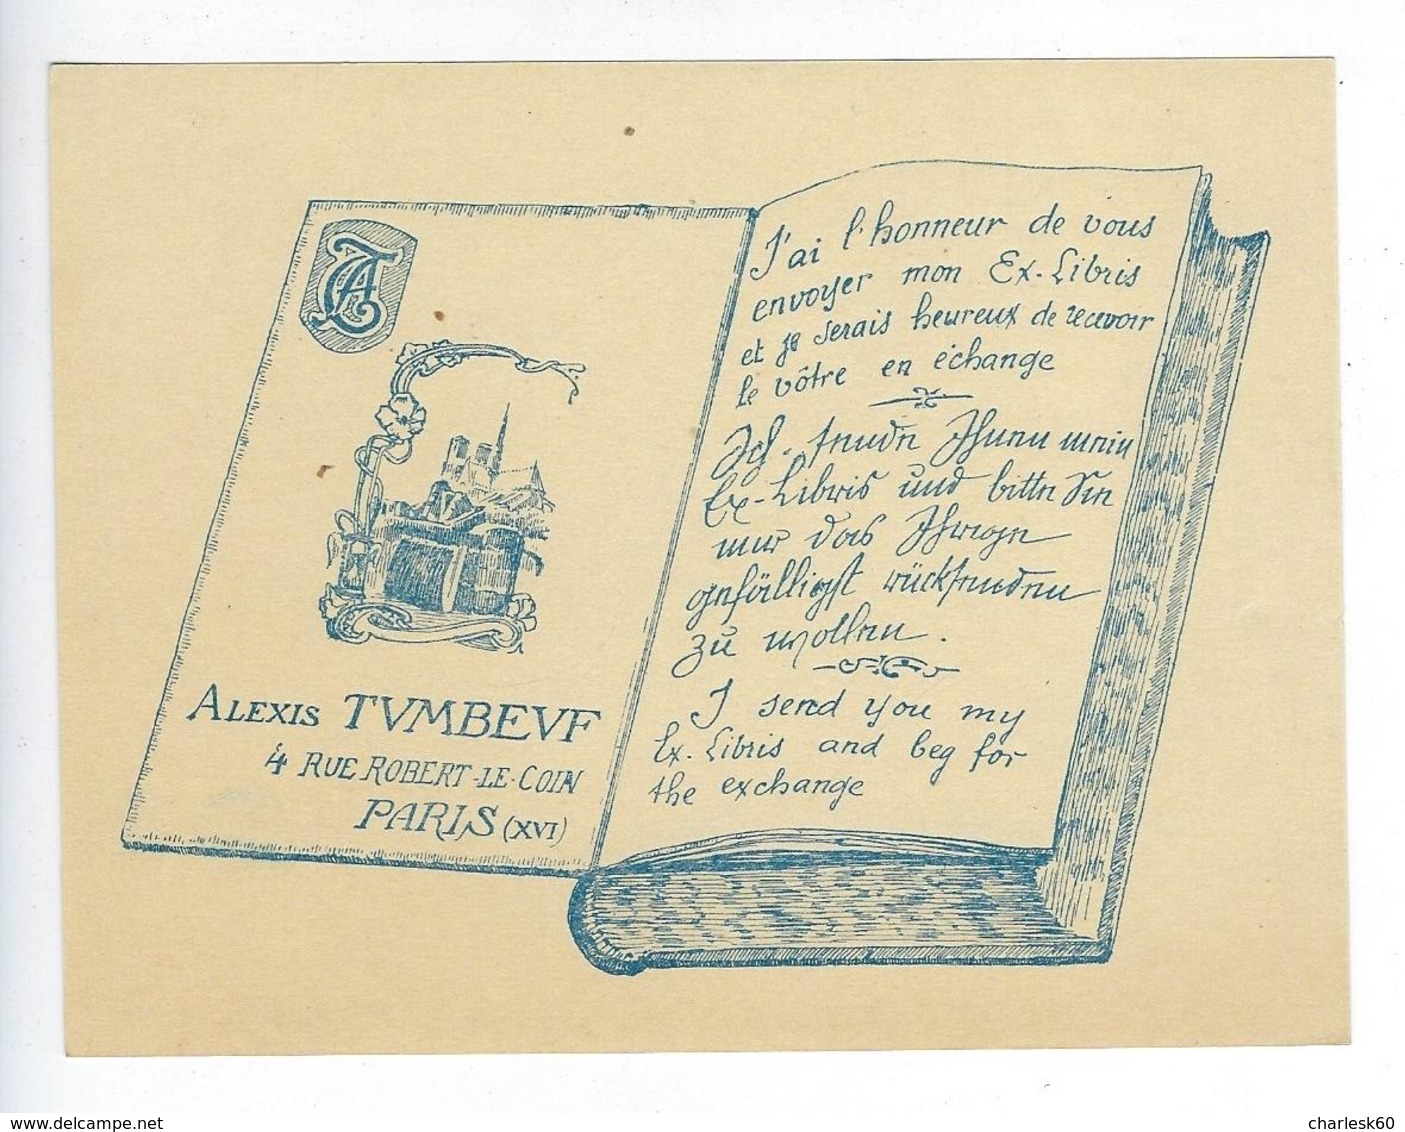 TA
ALEXIS TVMBEVF
4 RUE ROBERT-LE-COIN
PARIS (XVI)
J'ai l'honneur de vous
envoyer mon Ex-Libris
et je serais heureux de recevoir
le vôtre en échange
Ich sende Ihnen mein
Ex-Libris und bitte Sie
mir das Ihrige
gefälligst rücksenden
zu wollen.
I send you my
Ex-Libris and beg for
the exchange
www.delcampe.net
charlesk60